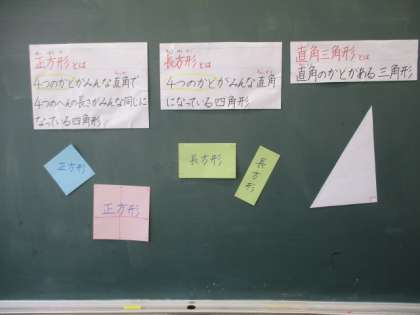 正方形とは
4つのかどがみんな直角で
4つのへんの長さがみんな同じに
なっている四角形
長方形とは
4つのかどがみんな直角
になっている四角形
直角三角形とは
直角のかどがある三角形
正方形
正方形
長方形
長方形